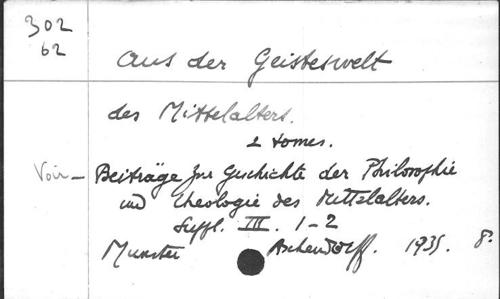 302
62
Aus der Geisteswelt
des Mittelalters.
2 tomes.
Voir — Beiträge zur Geschichte der Philosophie
und Theologie des Mittelalters.
Suppl. III. 1-2
Munster Aschendorff. 1935. 8°.